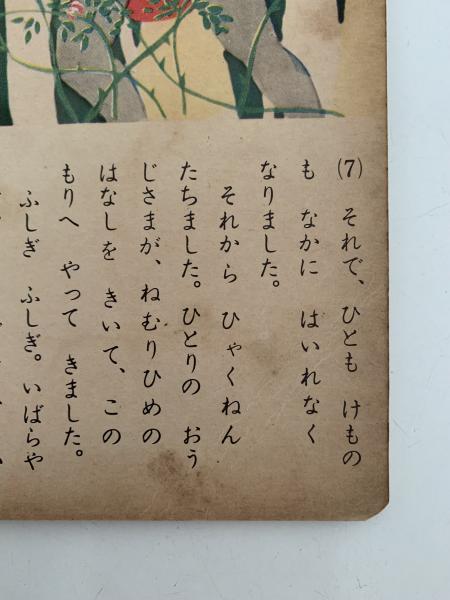 (7) それで、ひとも けもの
も なかに はいれなく
なりました。
それから ひゃくねん
たちました。ひとりの おう
じさまが、ねむりひめの
はなしを きいて、この
もりへ やって きました。
ふしぎ ふしぎ。いばらや